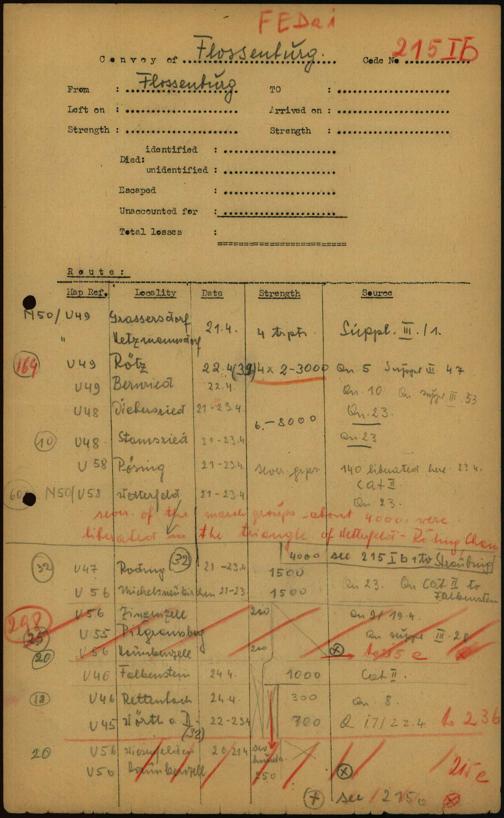 FEDai
Convoy of Flossenburg. Code No 215 I b
From : Flossenburg TO :
Left on : Arrived on :
Strength : Strength :
identified :
Died:
unidentified :
Escaped :
Unaccounted for :
Total losses :
Route:
Map Ref. Locality Date Strength Source
N50/U49 Grassersdorf 21.4. 4 trpts Suppl. III/1.
" Hetzmannsdorf
164 U49 Rötz 22.4 (39) 4x 2-3000 Qu 5 Suppl III 47
U49 Bernried 22.4. Qu. 10 Qu. suppl III 53
U48 Diebersried 21-23.4 6.-8000 Qu. 23.
10 U48 Stamsried 21-23.4 Qu 23
U58 Pösing 21-23.4 140 liberated here 23.4. Cat II
60 N50/U58 21-23.4 Qu 23.
sever. of the march groups about 4000 were
liberated in the triangle of - Roding Cham
4000 see 215 I b + to Straubing
32 U47 Roding (32) 21-23.4 1500 Qu 23. Qu Cat II to Falkenstein
U56 Michelsneukirchen 21-23 1500
298 U56 Zinzenzell 200 Qu 9/19.4.
25 U55 Pilgramsberg Qu suppl III 28
20 U56 200 215 c
U46 Falkenstein 24.4. 1000 Cat II.
18 U46 Rettenbach 24.4. 300 Qu 8.
U45 Wörth a. D. (32) 22-23.4 700 Q 17/22.4 to 236
20 U56 20/21.4 215 c
U56 250
see 215c